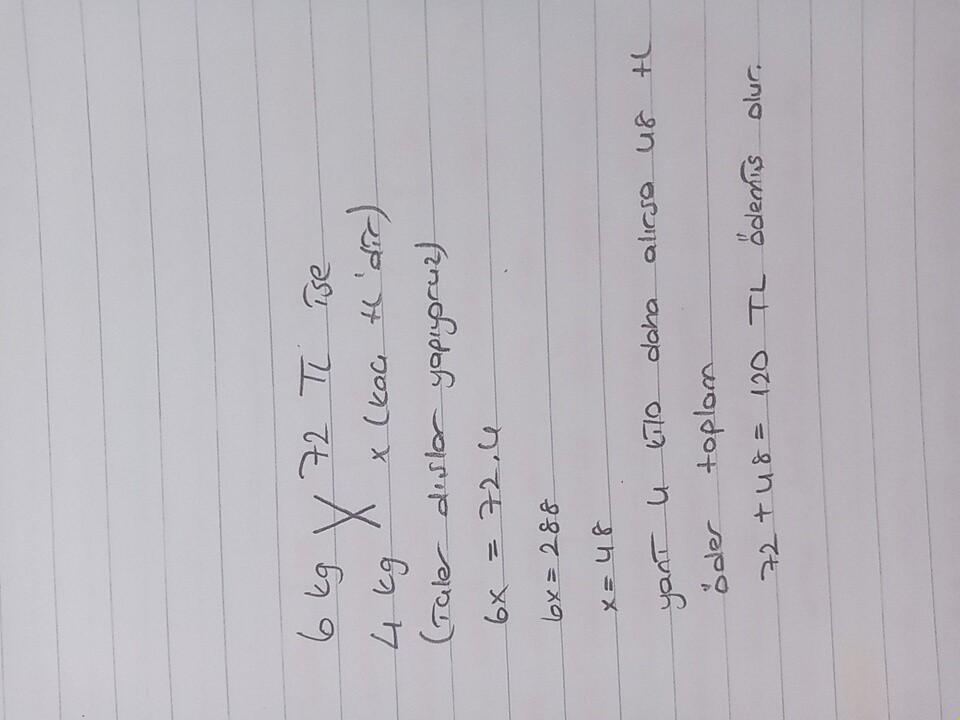 6 kg 72 TL ise
4 kg x (kaç tl'dir)
(İçler dışlar yapıyoruz)
6x = 72.4
6x = 288
x = 48
yani 4 kilo daha alırsa 48 tl
öder toplam
72 + 48 = 120 TL ödemiş olur.